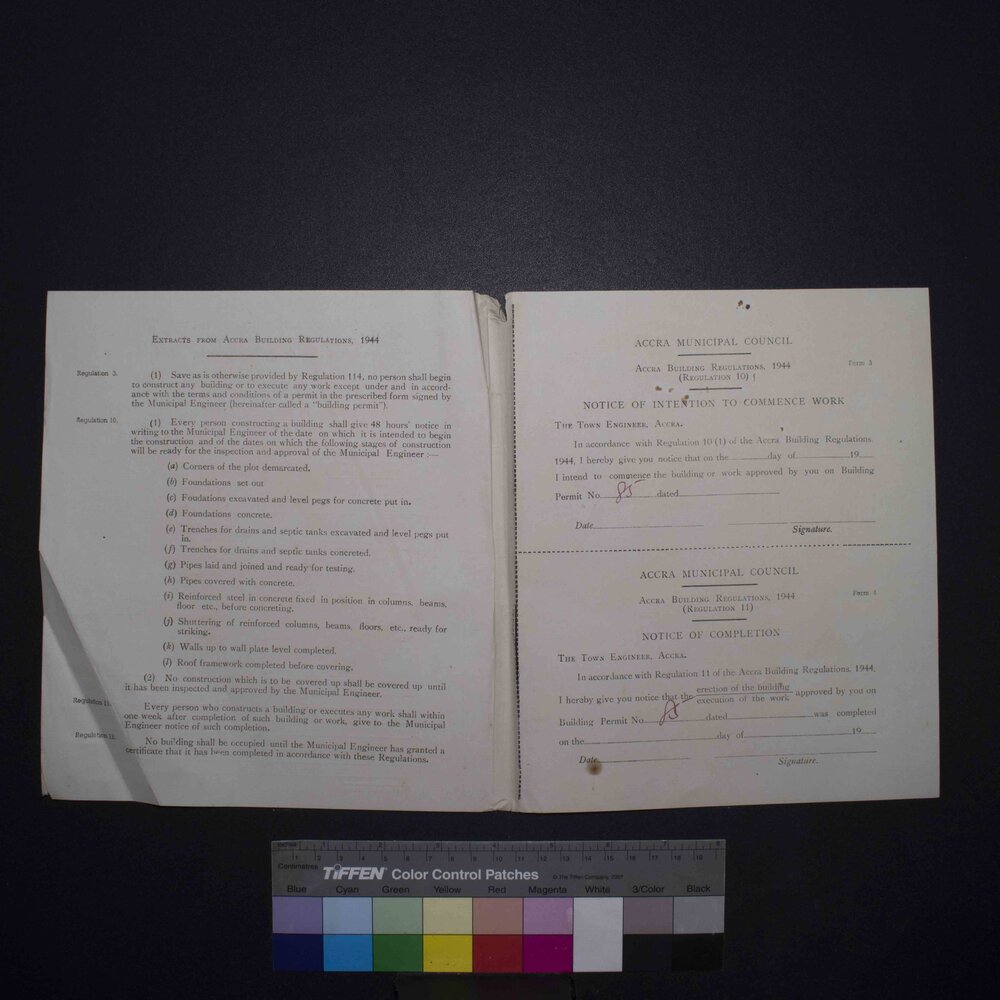 EXTRACTS FROM ACCRA BUILDING REGULATIONS, 1944
Regulation 3.
(1) Save as is otherwise provided by Regulation 114, no person shall begin
to construct any building or to execute any work except under and in accord-
ance with the terms and conditions of a permit in the prescribed form signed by
the Municipal Engineer (hereinafter called a "building permit").
Regulation 10.
(1) Every person constructing a building shall give 48 hours' notice in
writing to the Municipal Engineer of the date on which it is intended to begin
the construction and of the dates on which the following stages of construction
will be ready for the inspection and approval of the Municipal Engineer :—
(a) Corners of the plot demarcated.
(b) Foundations set out
(c) Foudations excavated and level pegs for concrete put in.
(d) Foundations concrete.
(e) Trenches for drains and septic tanks excavated and level pegs put
in.
(f) Trenches for drains and septic tanks concreted.
(g) Pipes laid and joined and ready for testing.
(h) Pipes covered with concrete.
(i) Reinforced steel in concrete fixed in position in columns, beams,
floor etc., before concreting.
(j) Shuttering of reinforced columns, beams, floors, etc., ready for
striking.
(k) Walls up to wall plate level completed.
(l) Roof framework completed before covering.
(2) No construction which is to be covered up shall be covered up until
it has been inspected and approved by the Municipal Engineer.
Regulation 11.
Every person who constructs a building or executes any work shall within
one week after completion of such building or work, give to the Municipal
Engineer notice of such completion.
Regulation 12.
No building shall be occupied until the Municipal Engineer has granted a
certificate that it has been completed in accordance with these Regulations.
ACCRA MUNICIPAL COUNCIL
ACCRA BUILDING REGULATIONS, 1944
Form 3
(REGULATION 10)
NOTICE OF INTENTION TO COMMENCE WORK
THE TOWN ENGINEER, ACCRA.
In accordance with Regulation 10 (1) of the Accra Building Regulations.
1944, I hereby give you notice that on the day of 19
I intend to commence the building or work approved by you on Building
Permit No. 85 dated
Date Signature.
ACCRA MUNICIPAL COUNCIL
ACCRA BUILDING REGULATIONS, 1944
Form 4
(REGULATION 11)
NOTICE OF COMPLETION
THE TOWN ENGINEER, ACCRA.
In accordance with Regulation 11 of the Accra Building Regulations, 1944,
I hereby give you notice that the erection of the building
execution of the work approved by you on
Building Permit No. 85 dated was completed
on the day of 19
Date Signature.
Inches 1 2 3 4 5 6 7 8
Centimetres 1 2 3 4 5 6 7 8 9 10 11 12 13 14 15 16 17 18 19
TIFFEN Color Control Patches
© The Tiffen Company, 2007
Blue Cyan Green Yellow Red Magenta White 3/Color Black